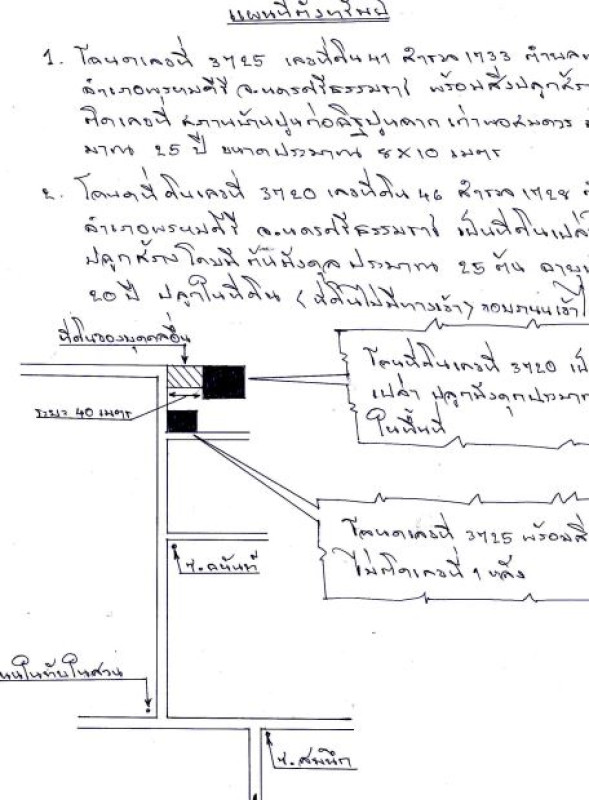 แผนที่ตั้งทรัพย์
1. โฉนดเลขที่ 3725 เลขที่ดิน 47 สำรวจ 1733 ตำบล
อำเภอพรหมคีรี จ.นครศรีธรรมราช พร้อมสิ่งปลูกสร้า
ติดเลขที่ สภาพบ้านปูนก่ออิฐ เก่าพอสมควร
มาณ 25 ปี ขนาดประมาณ 8x10 เมตร
2. โฉนดที่ดินเลขที่ 3720 เลขที่ดิน 46 สำรวจ 1728 ต
อำเภอพรหมคีรี จ.นครศรีธรรมราช เป็นที่ดินเปล่
ปลูกสร้าง โดยมีต้นมังคุด ประมาณ 25 ต้น อายุ
20 ปี ปลูกในที่ดิน (ที่ดินไม่มีทางเข้า)
ที่ดินของบุคคลอื่น
ระยะ 40 เมตร
โฉนดที่ดินเลขที่ 3720 เป็
เปล่า ปลูกมังคุดประมา
ในพื้นที่
โฉนดเลขที่ 3725 พร้อมสิ่
ไม่ติดเลขที่ 1 หลัง
ซ.อนันท์
ซ.สมนึก